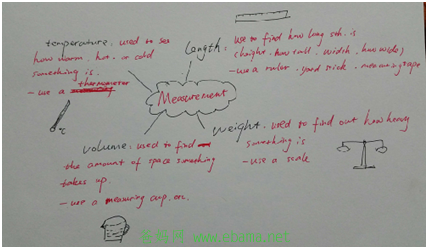 temperature. used to see
how warm. hot. or cold
something is.
- use a thermometer
length: use to find how long sth. is
(height. how tall. width. how wide)
- use a ruler. yard stick. measuring tape
Measurement
volume. used to find
the amount of space something
takes up.
- use a measuring cup, etc.
weight. used to find out how heavy
something is
- use a scale